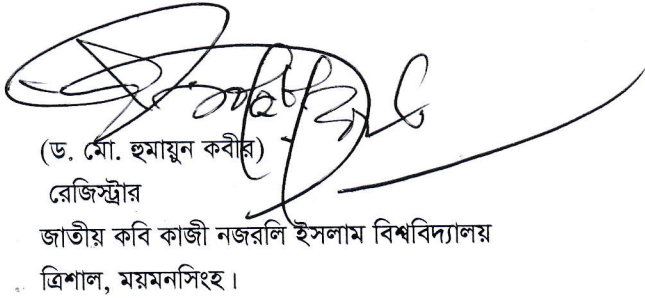 (ড. মো. হুমায়ুন কবীর)
রেজিস্ট্রার
জাতীয় কবি কাজী নজরলি ইসলাম বিশ্ববিদ্যালয়
ত্রিশাল, ময়মনসিংহ।